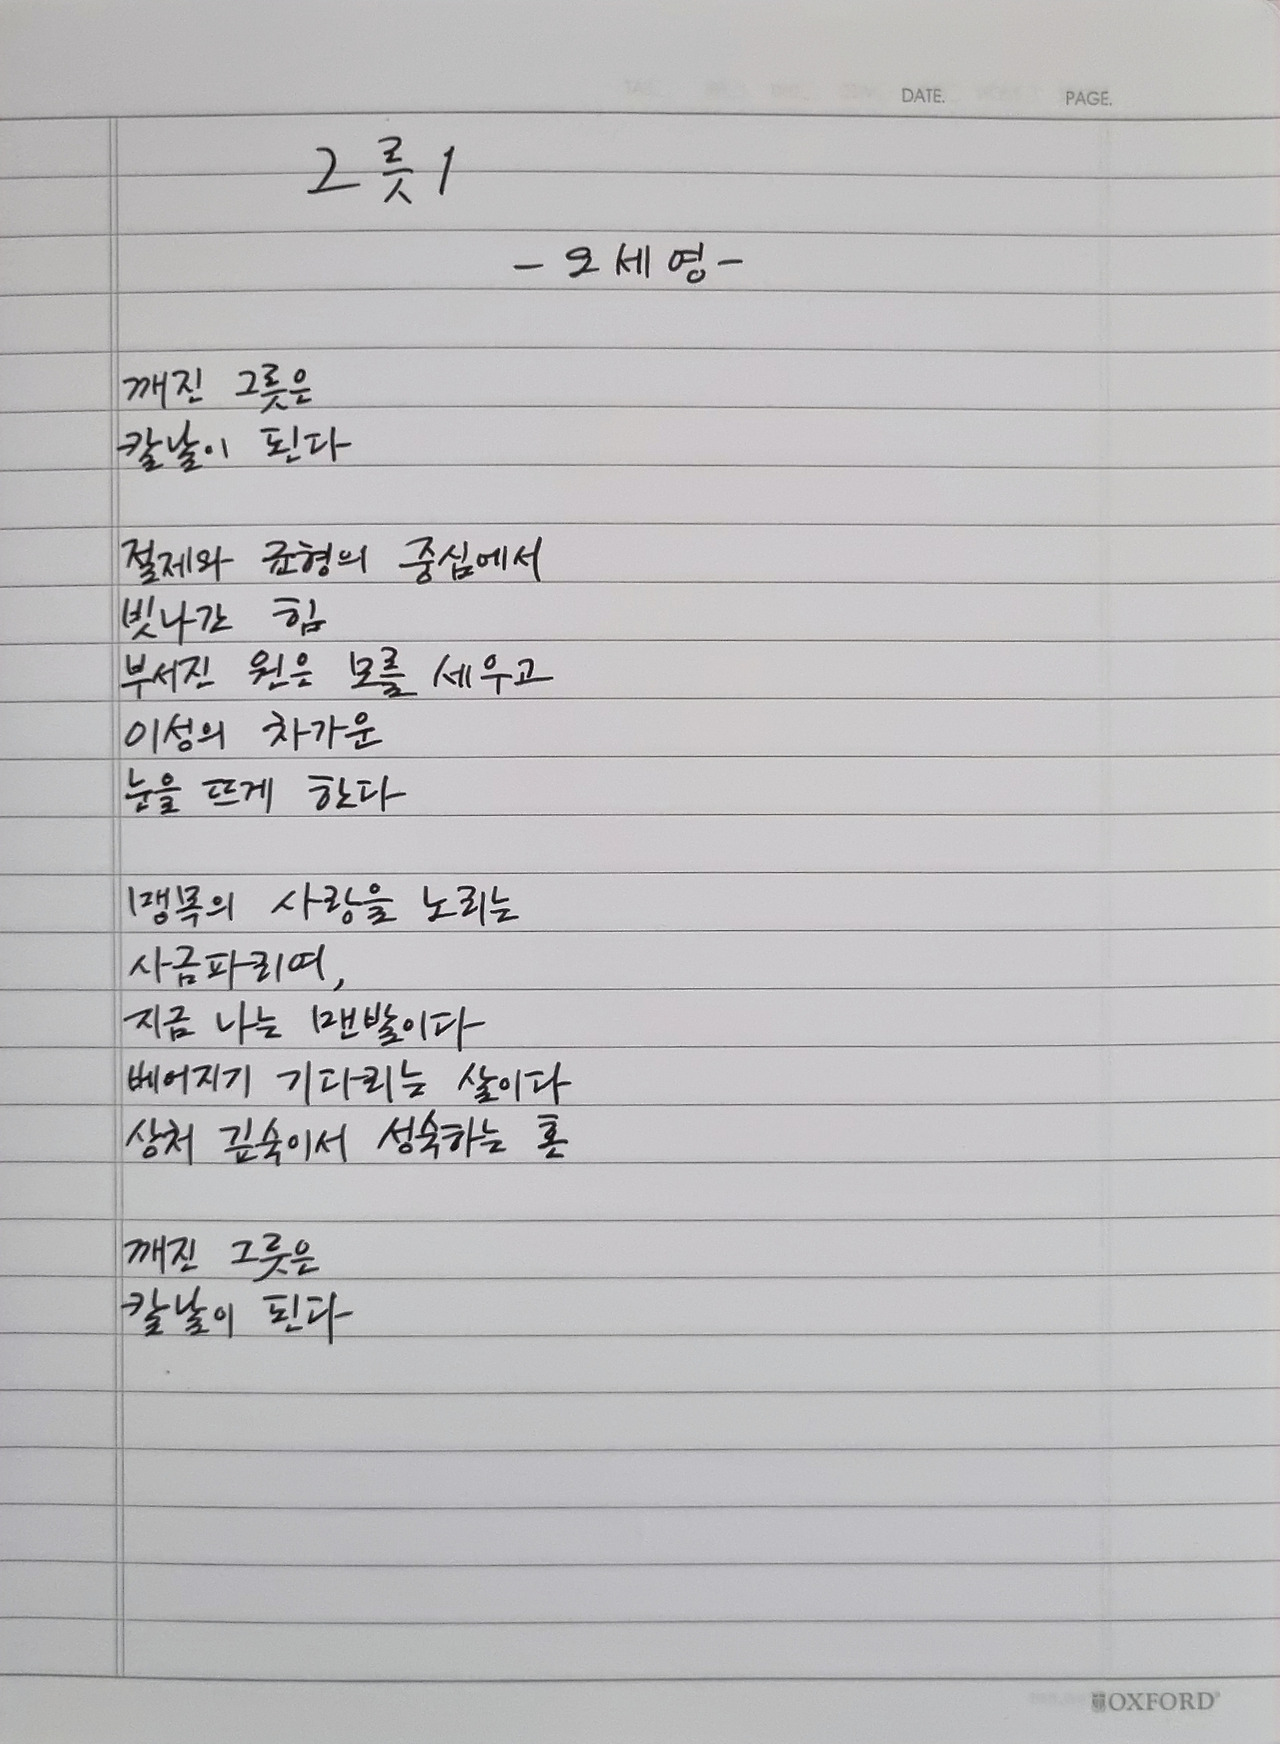 DATE. PAGE.
그릇 1
- 오세영 -
깨진 그릇은
칼날이 된다
절제와 균형의 중심에서
빗나간 힘
부서진 원은 모를 세우고
이성의 차가운
눈을 뜨게 한다
맹목의 사랑을 노리는
사금파리여,
지금 나는 맨발이다
베어지기 기다리는 살이다
상처 깊숙이서 성숙하는 혼
깨진 그릇은
칼날이 된다
OXFORD